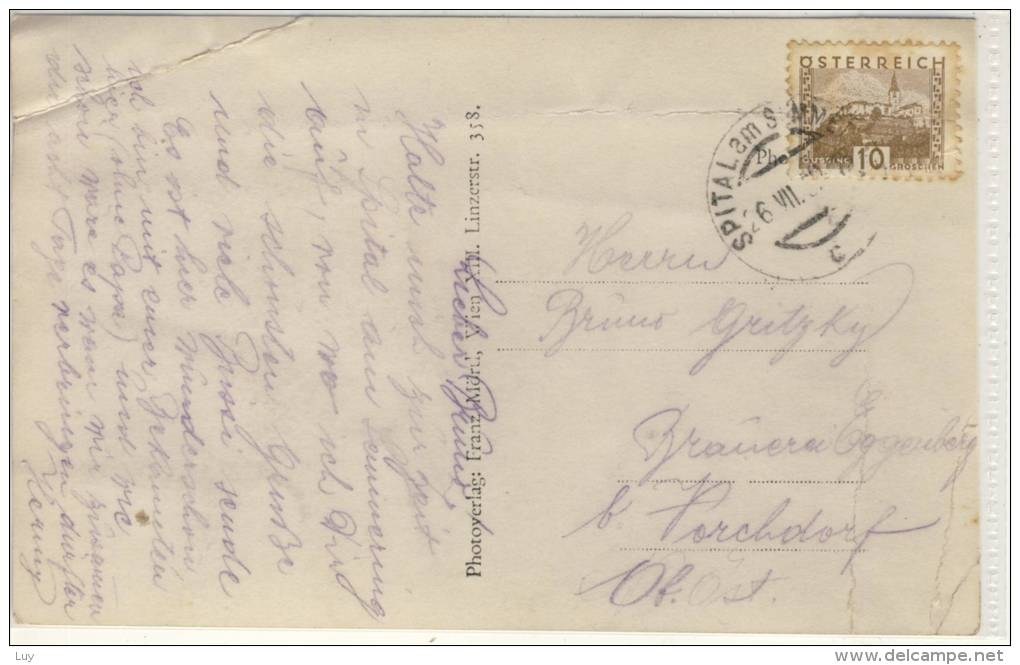 Lieber Bruno
Halte mich zur Zeit
in Spital am Semmering
auf, von wo ich Dir
die schönsten Grüße
und viele Bussi sende
Es ist hier wunderschön
ich bin mit einer Bekannten
hier (ohne Papa) und wie
schön wäre es wenn wir zusammen
die Tage verbringen dürften
Photoverlag: Franz Mördl, Wien XIII. Linzerstr. 358.
ÖSTERREICH
GÜSSING 10 GROSCHEN
SPITAL am SEMM
26 VII.
Pho
Herrn
Bruno Gritzky
Brauerei Eggenberg
b. Vorchdorf
Ob. Öst.
Luy
delcampe.net